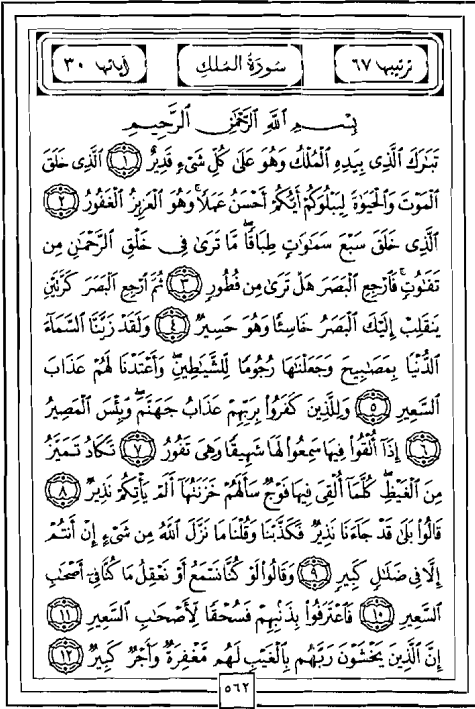 ترتيبها ٦٧ سُورَةُ الْمُلْكِ آياتها ٣٠
بِسْمِ اللَّهِ الرَّحْمَٰنِ الرَّحِيمِ
تَبَارَكَ الَّذِي بِيَدِهِ الْمُلْكُ وَهُوَ عَلَىٰ كُلِّ شَيْءٍ قَدِيرٌ ١ الَّذِي خَلَقَ
الْمَوْتَ وَالْحَيَوٰةَ لِيَبْلُوَكُمْ أَيُّكُمْ أَحْسَنُ عَمَلًا ۚ وَهُوَ الْعَزِيزُ الْغَفُورُ ٢
الَّذِي خَلَقَ سَبْعَ سَمَٰوَٰتٍ طِبَاقًا ۖ مَّا تَرَىٰ فِي خَلْقِ الرَّحْمَٰنِ مِن
تَفَٰوُتٍ ۖ فَارْجِعِ الْبَصَرَ هَلْ تَرَىٰ مِن فُطُورٍ ٣ ثُمَّ ارْجِعِ الْبَصَرَ كَرَّتَيْنِ
يَنقَلِبْ إِلَيْكَ الْبَصَرُ خَاسِئًا وَهُوَ حَسِيرٌ ٤ وَلَقَدْ زَيَّنَّا السَّمَاءَ
الدُّنْيَا بِمَصَٰبِيحَ وَجَعَلْنَٰهَا رُجُومًا لِّلشَّيَٰطِينِ ۖ وَأَعْتَدْنَا لَهُمْ عَذَابَ
السَّعِيرِ ٥ وَلِلَّذِينَ كَفَرُوا بِرَبِّهِمْ عَذَابُ جَهَنَّمَ ۖ وَبِئْسَ الْمَصِيرُ
٦ إِذَا أُلْقُوا فِيهَا سَمِعُوا لَهَا شَهِيقًا وَهِيَ تَفُورُ ٧ تَكَادُ تَمَيَّزُ
مِنَ الْغَيْظِ ۖ كُلَّمَا أُلْقِيَ فِيهَا فَوْجٌ سَأَلَهُمْ خَزَنَتُهَا أَلَمْ يَأْتِكُمْ نَذِيرٌ ٨
قَالُوا بَلَىٰ قَدْ جَاءَنَا نَذِيرٌ فَكَذَّبْنَا وَقُلْنَا مَا نَزَّلَ اللَّهُ مِن شَيْءٍ إِنْ أَنتُمْ
إِلَّا فِي ضَلَٰلٍ كَبِيرٍ ٩ وَقَالُوا لَوْ كُنَّا نَسْمَعُ أَوْ نَعْقِلُ مَا كُنَّا فِي أَصْحَٰبِ
السَّعِيرِ ١٠ فَاعْتَرَفُوا بِذَنبِهِمْ فَسُحْقًا لِّأَصْحَٰبِ السَّعِيرِ ١١
إِنَّ الَّذِينَ يَخْشَوْنَ رَبَّهُم بِالْغَيْبِ لَهُم مَّغْفِرَةٌ وَأَجْرٌ كَبِيرٌ ١٢
٥٦٢